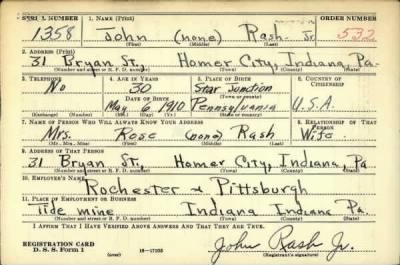 SERIAL NUMBER 1. NAME (Print) ORDER NUMBER
1358 John (none) Rash Jr 532
(First) (Middle) (Last)
2. ADDRESS (Print)
31 Bryan St. Homer City, Indiana, Pa.
(Number and street or R. F. D. number) (Town) (County) (State)
3. TELEPHONE 4. AGE IN YEARS 5. PLACE OF BIRTH 6. COUNTRY OF CITIZENSHIP
No 30 Star Junction
DATE OF BIRTH (Town or county)
May 6 1910 Pennsylvania U.S.A.
(Exchange) (Number) (Mo.) (Day) (Yr.) (State or country)
7. NAME OF PERSON WHO WILL ALWAYS KNOW YOUR ADDRESS 8. RELATIONSHIP OF THAT PERSON
Mrs. Rose (none) Rash Wife
(Mr., Mrs., Miss) (First) (Middle) (Last)
9. ADDRESS OF THAT PERSON
31 Bryan St, Homer City, Indiana, Pa
(Number and street or R. F. D. number) (Town) (County) (State)
10. EMPLOYER'S NAME
Rochester & Pittsburgh
11. PLACE OF EMPLOYMENT OR BUSINESS
Tide mine Indiana Indiana Pa.
(Number and street or R. F. D. number) (Town) (County) (State)
I AFFIRM THAT I HAVE VERIFIED ABOVE ANSWERS AND THAT THEY ARE TRUE.
REGISTRATION CARD
D. S. S. Form 1 (over) 16—17105 John Rash Jr.
(Registrant's signature)